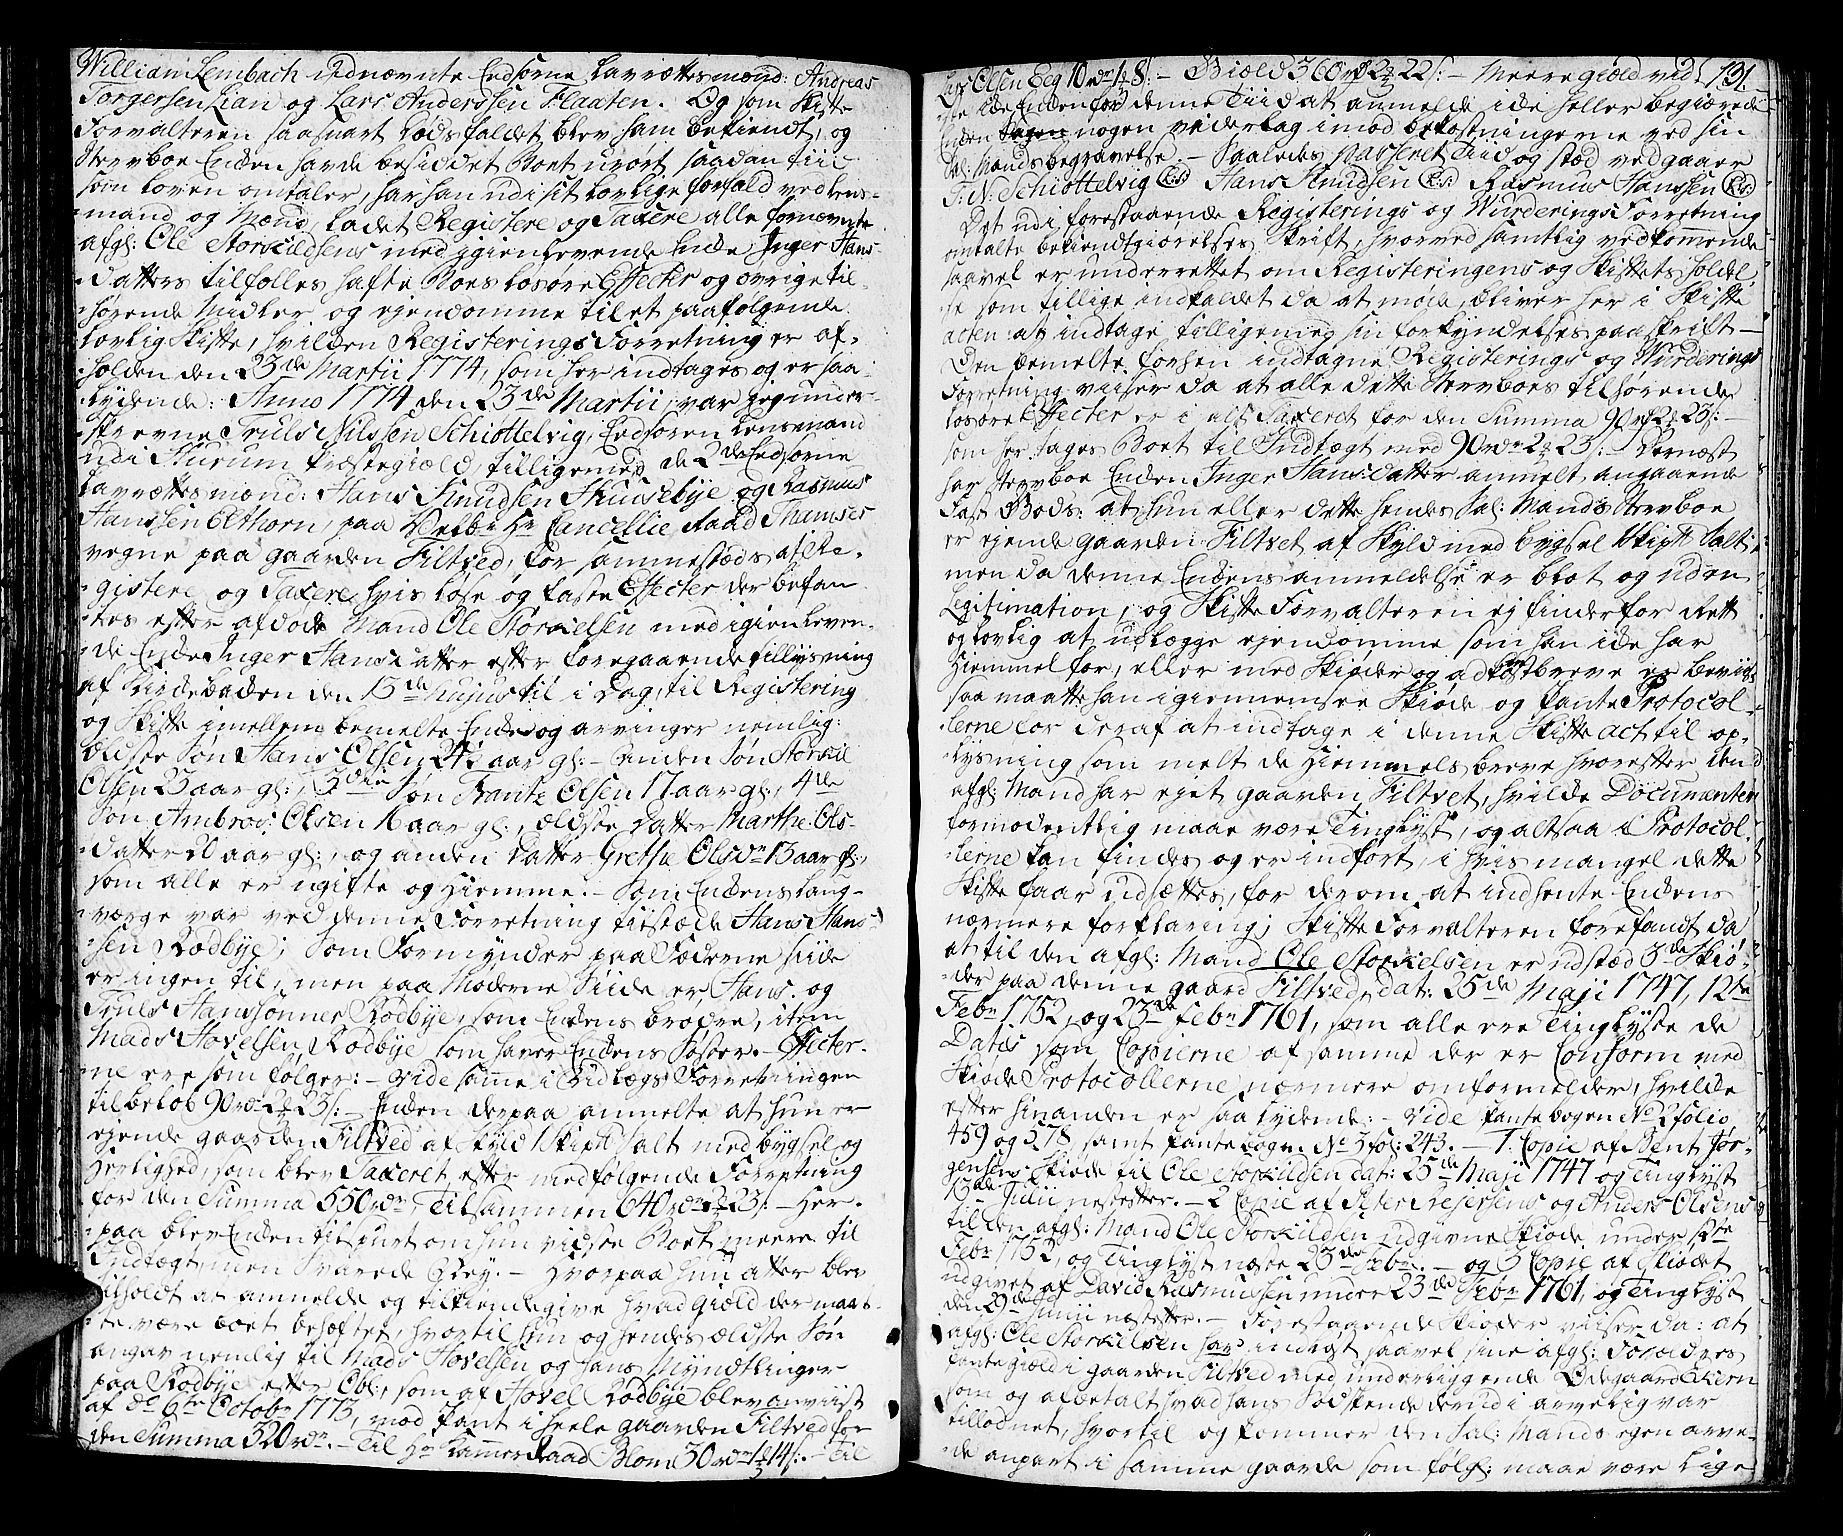 William Lembach udnævnte Eedsorne Lavrettes mænd: Andreas
Torgersen Lian og Lars Anderssen Flaaten. Og som Skifte
Forvalteren saasnart Dødsfaldet blev ham bekiendt, og
Stervboe Enken havde besiddet Boet urørt saadan Tiid
som Loven omtaler, har han udi sit Lovlige forfald ved Lens-
mand og Mænd, ladet Registere og Taxere alle fornævnte
afgl: Ole Storkildsens med igienlevende Enke Inger Hans-
datters tilfælles hafte Boes Løsøre Effecter og øvrige til-
hørende Midler og ejendomme til et paafølgende
Lovlig Skifte, hvilken Registerings Forretning er af-
holden den 23de Martii 1774, som her indtages og er saa-
lydende: Anno 1774 den 23de Martii var jeg under-
skrevne Truls Nilssen Schiøttelvig, Eedsoren Lensmand
udi Hurum Præstegield, tilligemed de 2de Eedsorne
Lavrettesmænd: Hans Knudsen Huusebye og Rasmus
Hanssen Elthorn, paa Welb: Hr Cancellie Raad Thamses
vegne paa gaarden Filtved, for sammesteds at Re-
gistere og Taxere hvis løse og faste Effecter der befan-
tes efter afdøde Mand Ole Storkelsen med igienleven-
de Enke Inger Hansdatter efter foregaaende tillysning
af Kirkebaken den 13de hujus til i Dag, til Registering
og Skifte imellem bemelte Enke og arvinger nemlig:
Ældste Søn Hans Olsen 24 aar gl: - Anden Søn Storkil
Olsen 23 aar gl:, 3die Søn Frantz Olsen 17 aar gl:, 4de
Søn Ambros: Olsen 16 aar gl:, ældste Datter Marthe Ols-
datter 20 aar gl:, og anden Datter Grethe Olsdr 13 aar gl:,
som alle er ugifte og Hiemme. - Som Enkens Laug-
værge var ved denne Forretning tilstæde Hans Hans-
sen Rødbye; Som Formynder paa Fæderne Siide
er ingen til, men paa Møderne Siide er Hans og
Truls Hanssønner Rødbye, som Enkens brødre, item
Mads Hovelsen Rødbye som haver Enkens Søster. - Effecter-
ne ere som følger: - vide samme i Bidlægs Forretningen
til beløb 90 rdr 2 ort 23 s: - Enken derpaa anmelte at hun er
ejende gaarden Filtved af Skyld 1 Skipd Salt med bygsel og
Herlighed, som blev Taxeret, efter medfølgende Forretning
for den Summa 550 rdr, Tilsammen 640 rdr 2 ort 23 s: - Her-
paa blev Enken tilspurt om hun vidste Boet meere til
Indtægt, men Svarede Ney. - Hvorpaa hun atter blev
tilholdt at anmelde og tilkiendegive hvad Gield der maat-
te være Boet behæftet, hvortil hun og hendes ældste Søn
angav nemlig til Mads Hovelsen og hans Myndtlinger
paa Rødbye efter Obl:, som af Hovel Rødbye blev anviist
af dto 6te Octobr 1773, mod Pant i heele gaarden Filtved for
den Summa 320 rdr. - Til Hr Kammerraad Blom 30 rdr 1 ort 14 s: - Til
131.
Lars Olsen Eeg 10 rdr 1 ort 8 s: - Gield 360 rdr 2 ort 22 s: - Meere gield vid-
ste ikke Enken for denne Tiid at anmelde, ikke heller begiærede
Enken nogen vederlag imod bekostningerne ved sin
Sl: Mands begravelse. - Saaledes passeret Tiid og stæd vedgaaer
T: N: Schiøttelvig (L:S:) Hans Knudsen (L:S:) Rasmus Hanssen (L:S:)
Det udi forestaaende Registerings og Wurderings Forretning
omtalte bekiendtgiørelses Skrift, hvorved samtlig vedkommende
saavel er underrettet om Registeringens og Skiftets holdel-
se som tillige indkaldet da at møde, bliver her i Skifte
acten at indtage tilligemed sin forkyndelses paaskrift -
Den bemelte forhen indtagne Registerings og Wurderings
Forretning viiser da at alle dette Stervboes tilhørende
løsøre Effecter er i alt Taxeret for den Summa 90 rdr 2 ort 23 s: -
som her tages Boet til Indtægt med 90 rdr 2 ort 23 s: - Dernæst
har Stervboe Enken Inger Hansdatter anmelt, angaaende
Fast Gods: at hun eller dette hendes Sal: Mands Stervboe
er ejende gaarden Filtvet af Skyld med bygsel 1 Skipd Salt
men da denne Enkens anmeldelse er blot og uden
Legitimation, og Skifte Forvalteren ej finder for Rett
og Lovlig at udlægge ejendomme som han ikke har
Hiemmel for, eller med Skiøder og adkomst breve er beviist
saa maatte han igiennemsee Skiøde og Pante Protocol-
lerne for deraf at indtage i denne Skifte act til op-
lysning som melt de Hiemmels breve hvorefter den
afgl: Mand har ejet gaarden Filtvet, hvilke Documenter
formodentlig maae være Tinglyst, og altsaa i Protocol-
lerne kan findes og er indført, i hvis mangel dette
Skifte faar udsættes, for derom at indhente Enkens
nærmere forklaring; Skifte Forvalteren forefandt da
at til den afgl: Mand Ole Storkelsen er udstæd 3de Skiø-
der paa denne gaard Filtved, dat: 25de Maji 1747, 12te
Febr 1752, og 23de Febr 1761, som alle ere Tinglyste de
Datis som Copierne af samme der er Conform med
Skiøde Protocollerne nærmere omformelder, hvilke
efter hinanden er saa lydende: - vide Pantebogen No 2 folio
459 og 578 samt Pantebogn No 3 fol: 243. - 1. Copie af Bent Jør-
gensens Skiøde til Ole Storkildsen dat: 25de Maji 1747 og Tinglyst
13de Julii næstefter. - 2 Copie af Peter Pedersens og Anders Olsens
til den afgl: Mand Ole Storkildsen udgivne Skiøde under 12te
Febr 1752, og Tinglyst næste 23de Febr. - og 3 Copie af Skiødet
udgivet af David Rasmussen under 23de Febr 1761, og Tinglyst
den 29de Junii næstefter. - Forestaaende Skiøder viiser da: at
afgl: Ole Storkelsen har indløst saavel sine afgl: Forældres
Pantegield i gaarden Filtved med underliggende Ødegaard Kiern
som og afbetalt hvad hans Sødskende derudi arvelig var
tillodnet, hvortil og kommer den Sal: Mands egen arve-
de anpart i samme gaarde som følgl: maae være Lige